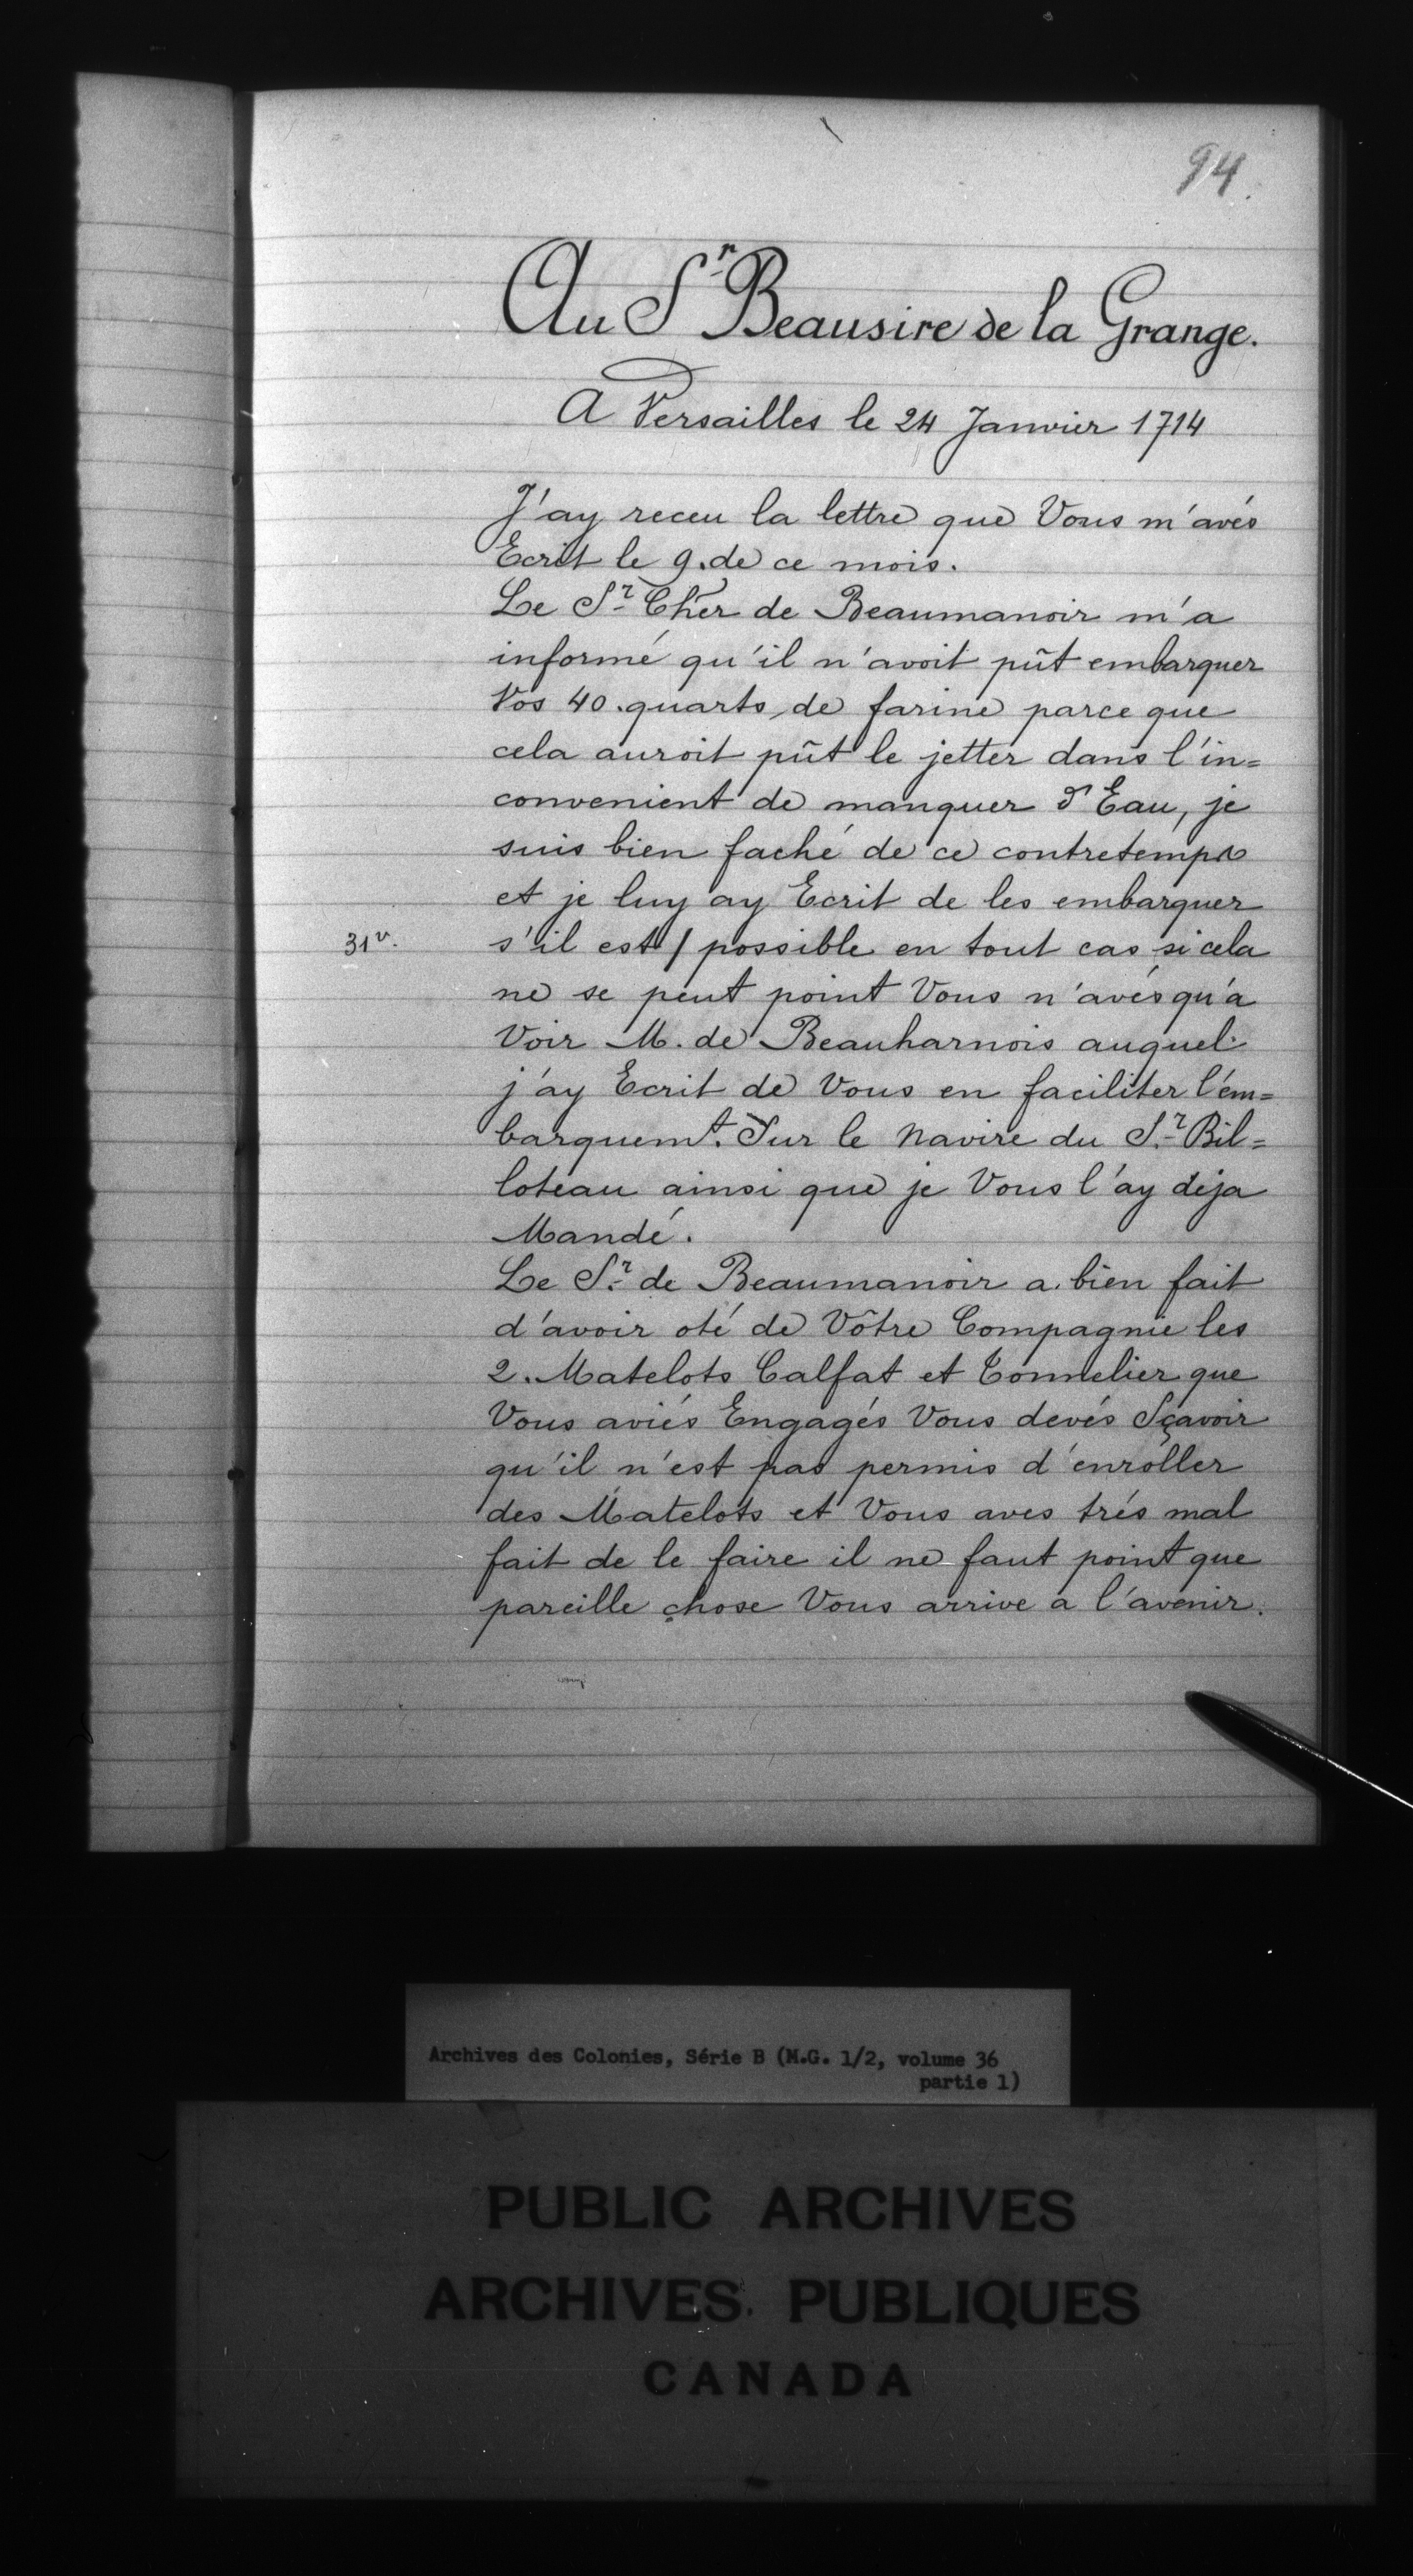 94.
Au Sr Beausire de la Grange.
A Versailles le 24 Janvier 1714
J'ay receu la lettre que Vous m'avés
Ecrit le 9. de ce mois.
Le Sr Cher de Beaumanoir m'a
informé qu'il n'avoit pût embarquer
Vos 40. quarts de farine parce que
cela auroit pût le jetter dans l'in=
convenient de manquer d'Eau, je
suis bien faché de ce contretemps
et je luy ay Ecrit de les embarquer
31v. s'il est / possible en tout cas si cela
ne se peut point Vous n'avés qu'a
Voir M. de Beauharnois auquel
j'ay Ecrit de Vous en faciliter l'em=
barquemt. Sur le Navire du Sr. Bil=
loteau ainsi que je Vous l'ay deja
Mandé.
Le Sr. de Beaumanoir a bien fait
d'avoir oté de Vôtre Compagnie les
2. Matelots Calfat et Tonnelier que
Vous aviés Engagés Vous devés Sçavoir
qu'il n'est pas permis d'enroller
des Matelots et Vous aves trés mal
fait de le faire il ne faut point que
pareille chose Vous arrive a l'avenir.
Archives des Colonies, Série B (M.G. 1/2, volume 36
partie 1)
PUBLIC ARCHIVES
ARCHIVES PUBLIQUES
CANADA